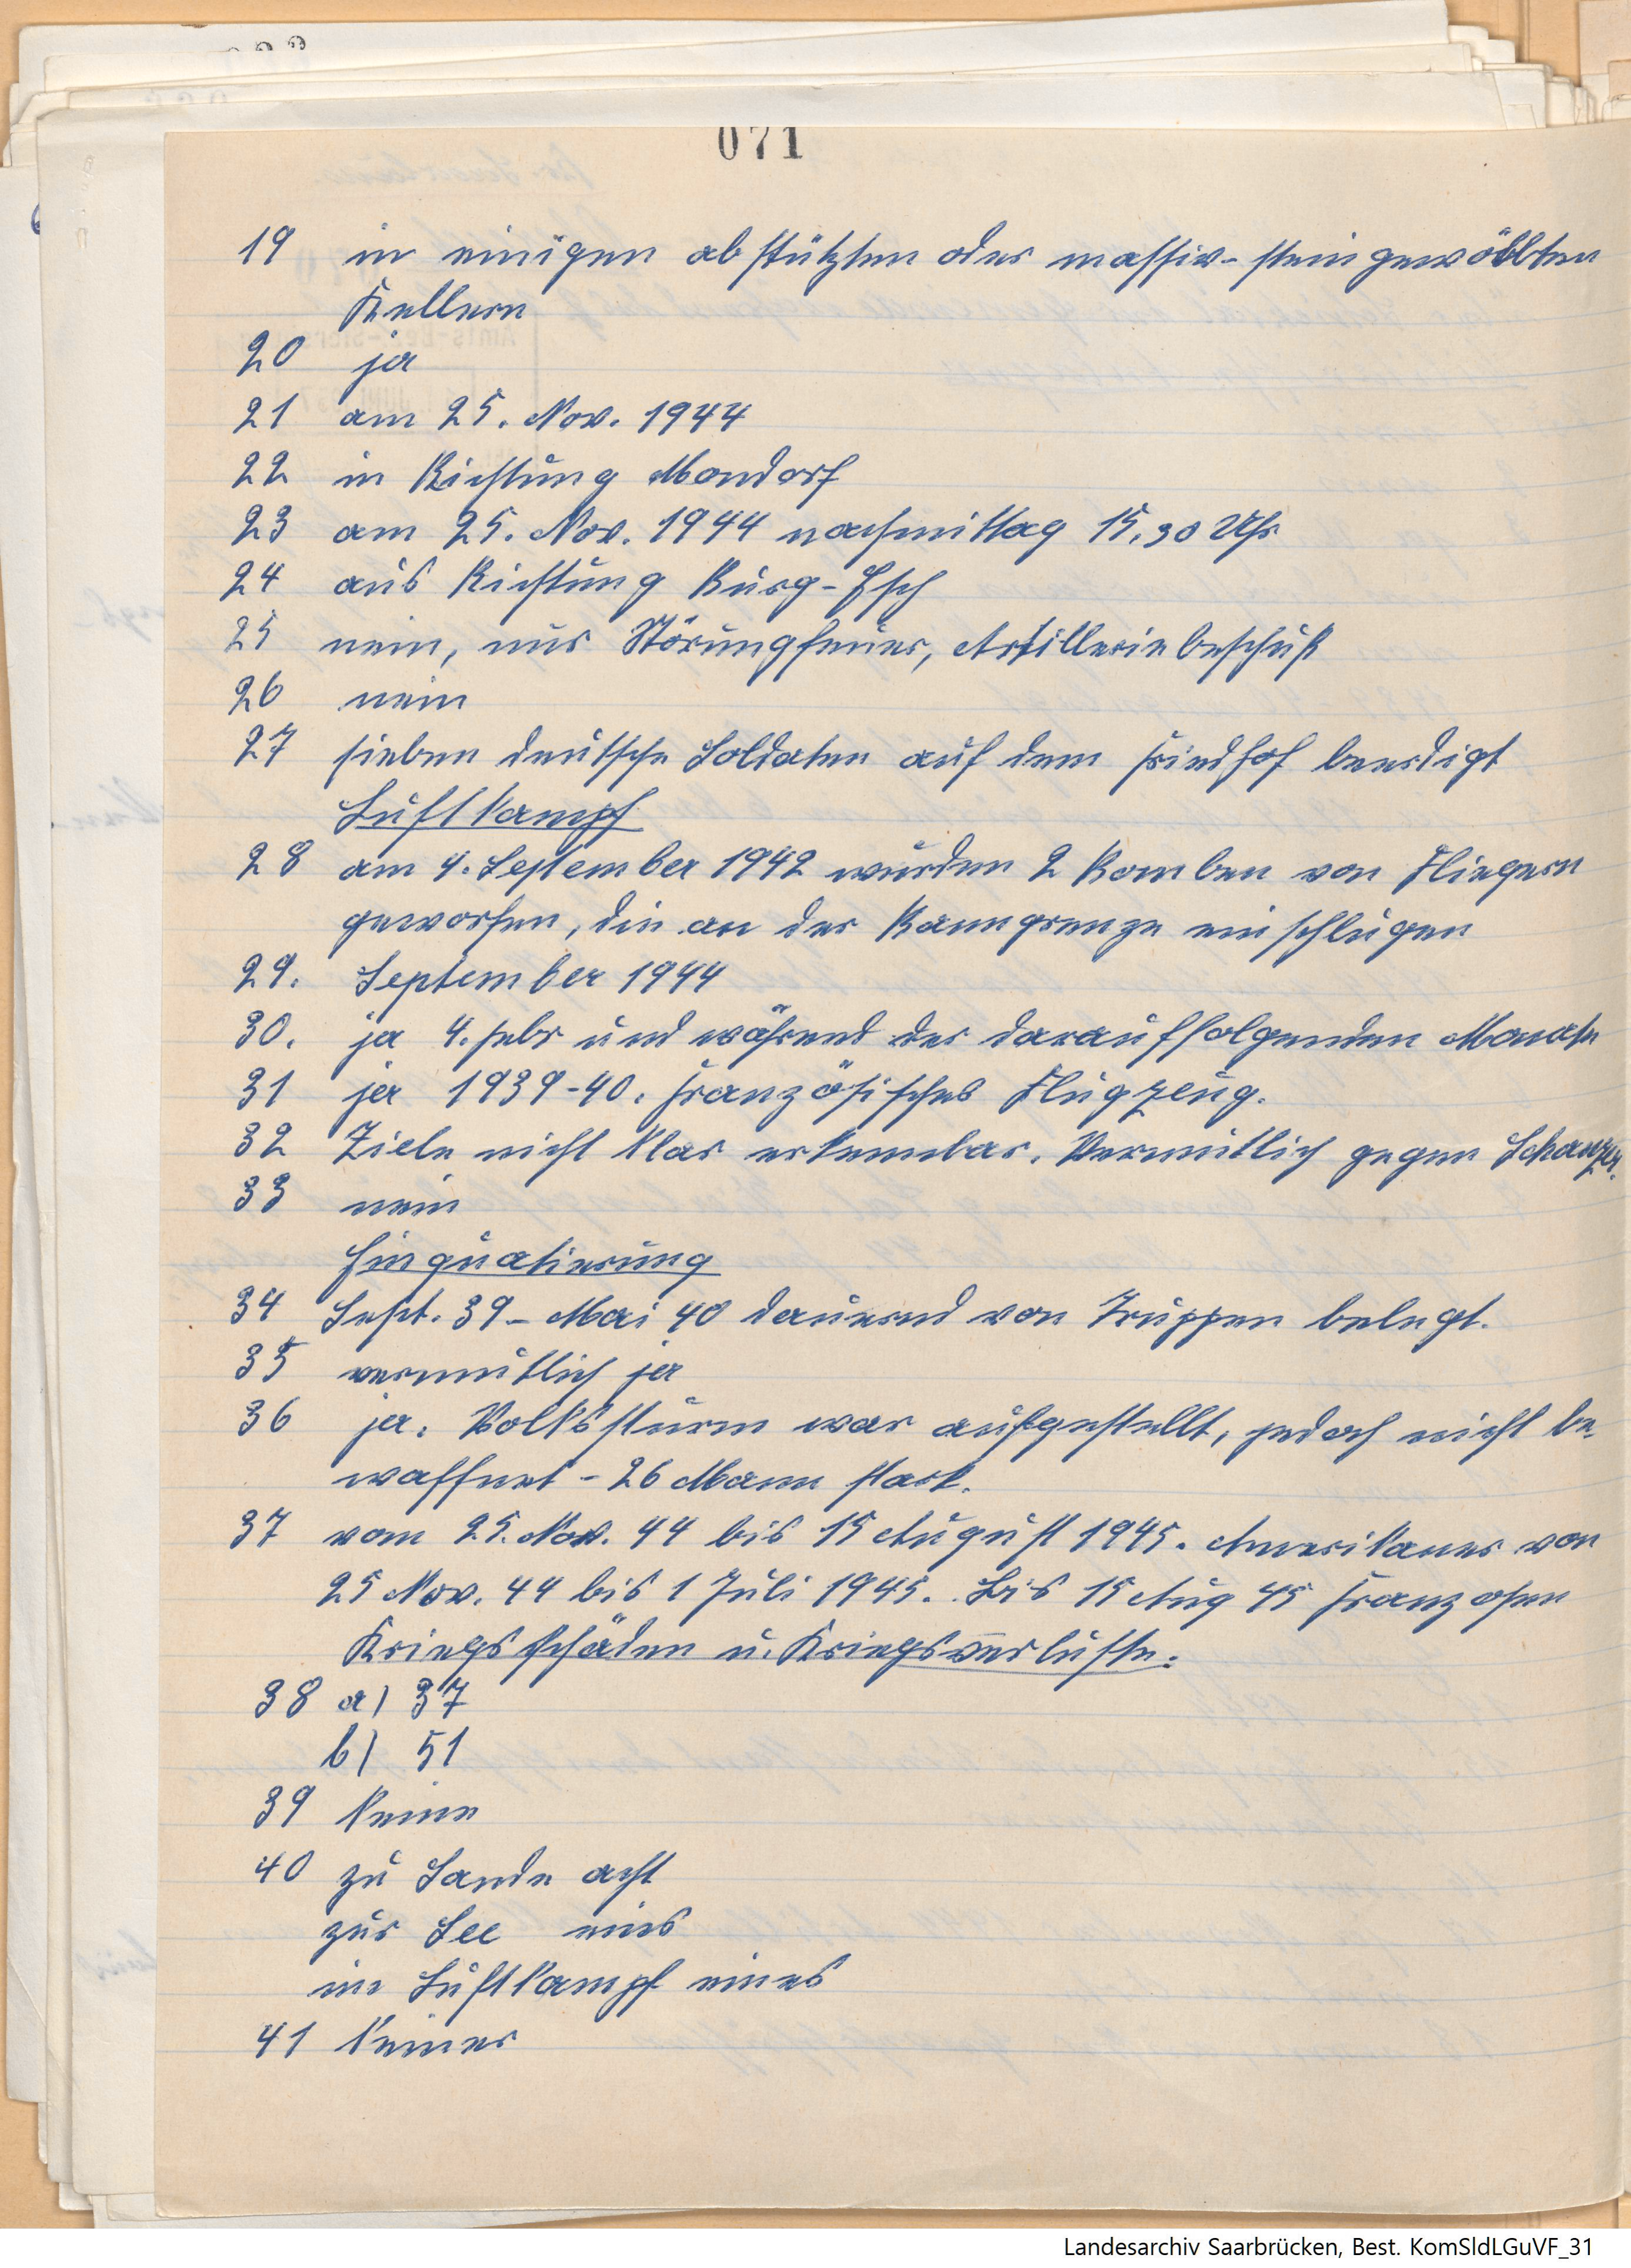 071
19 in einigen abstützten oder massiv-steingewölbten
Kellern
20 ja
21 am 25. Nov. 1944
22 in Richtung Mondorf
23 am 25. Nov. 1944 nachmittag 15,30 Uhr
24 aus Richtung Burg-Esch
25 nein, nur Störungfeuer, Artilleriebeschuß
26 nein
27 sieben deutsche Soldaten auf dem Friedhof beerdigt
Luftkampf
28 am 4. September 1942 wurden 2 Bomben von Fliegern
geworfen, die an der Banngrenze einschlugen
29. September 1944
30. ja 4. Febr und während der darauffolgenden Monate
31 ja 1939-40. französisches Flugzeug.
32 Ziele nicht klar erkennbar. Vermutlich gegen Schanzer.
33 nein
Einquatierung
34 Sept. 39 - Mai 40 dauernd von Truppen belegt.
35 vermutlich ja
36 ja. Volkssturm war aufgestellt, jedoch nicht be-
waffnet - 26 Mann stark.
37 vom 25. Nov. 44 bis 15 August 1945. Amerikaner von
25 Nov. 44 bis 1 Juli 1945. Bis 15 Aug 45 Franzosen
Kriegsschäden u. Kriegsverluste.
38 a) 37
b) 51
39 keine
40 zu Lande acht
zur See eins
im Luftkampf eines
41 keiner
Landesarchiv Saarbrücken, Best. KomSldLGuVF_31